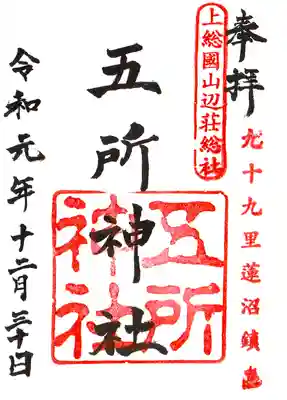 奉拝
九十九里蓮沼鎮
上総國山辺荘総社
五所神社
五所
神社
令和元年十二月三十日